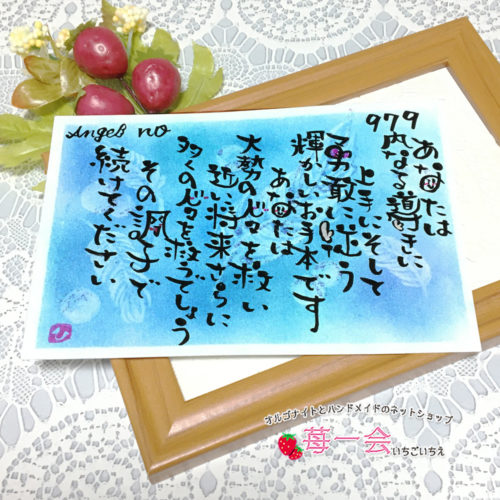 Angel no
979
あなたは
内なる導きに
上手にそして
勇敢に従う
輝かしいお手本です
あなたは
大勢の心を救い
近い将来さらに
多くの心を救うでしょう
その調子で
続けてください
ひ
オルゴナイトとハンドメイドのネットショップ
苺一会 いちごいちえ